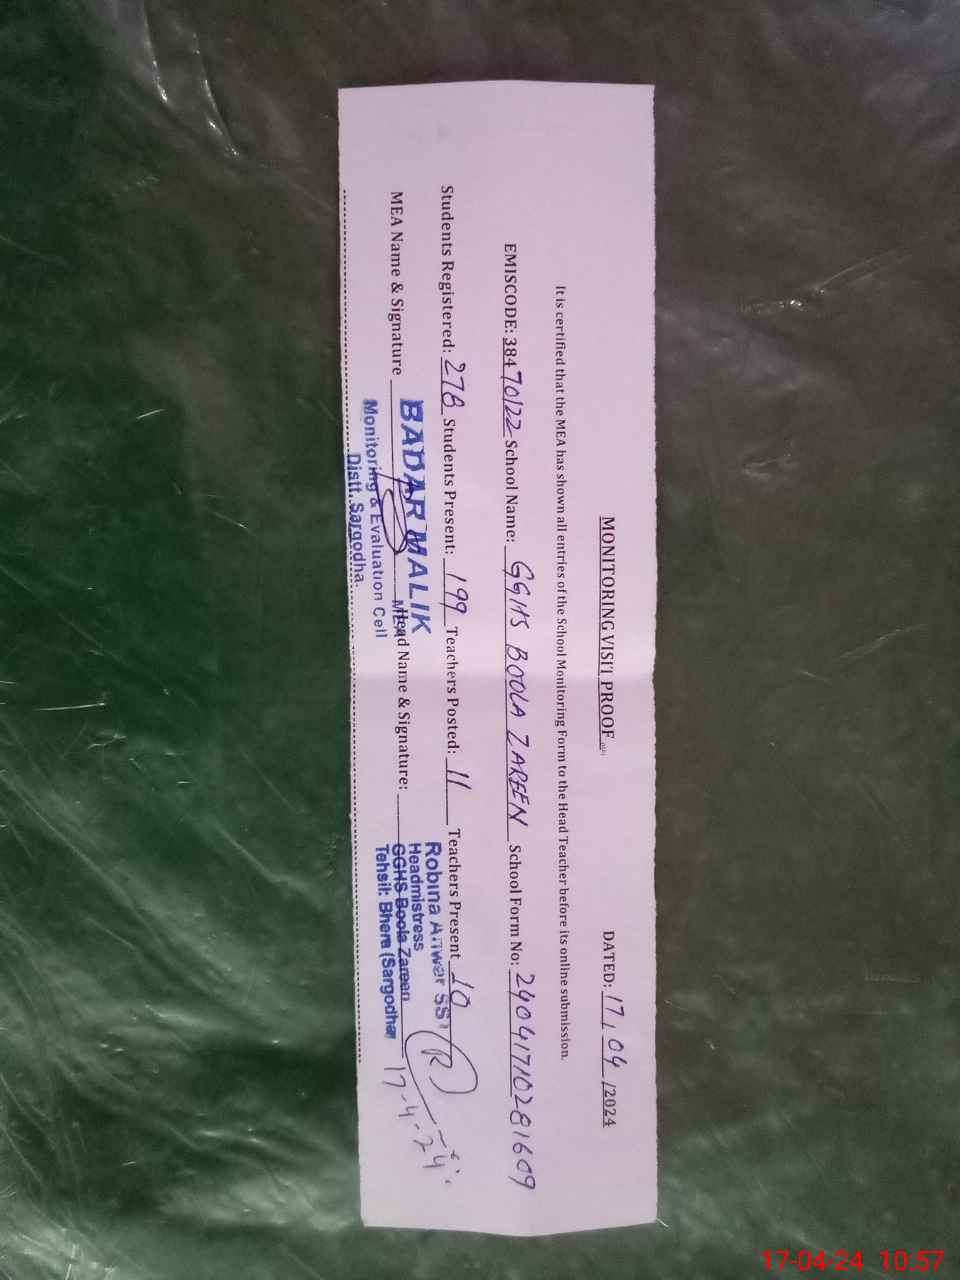 MONITORING VISIT PROOF
DATED: 17/04/2024
It is certified that the MEA has shown all entries of the School Monitoring Form to the Head Teacher before its online submission.
EMISCODE: 38470122 School Name: GGHS BOOLA ZAREEN School Form No: 24041710281609
Students Registered: 278 Students Present: 199 Teachers Posted: 11 Teachers Present 10
MEA Name & Signature Head Name & Signature:
BADAR MALIK
MEA
Monitoring & Evaluation Cell
Distt. Sargodha.
Robina Anwar SS
Headmistress
GGHS Boola Zareen
Tehsil: Bhera (Sargodha)
17-4-24
17-04-24 10:57